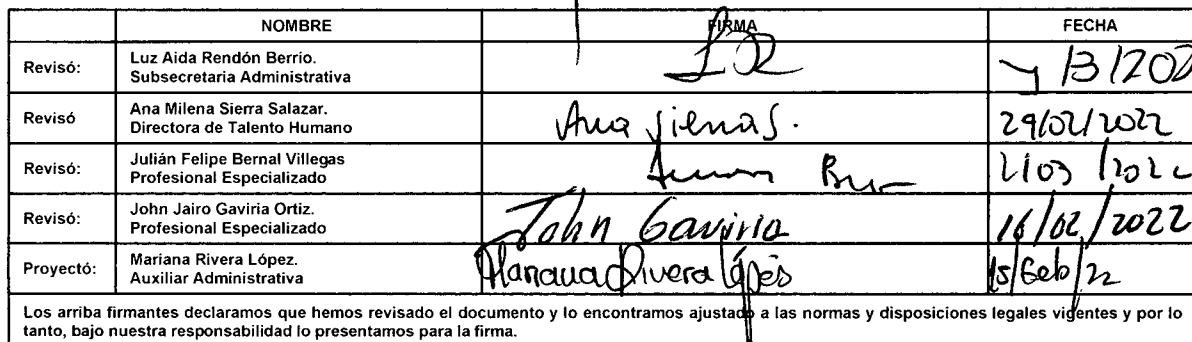 NOMBRE FIRMA FECHA
Revisó: Luz Aida Rendón Berrio.
Subsecretaria Administrativa
Revisó Ana Milena Sierra Salazar.
Directora de Talento Humano
Ana Sierra S.
Revisó: Julián Felipe Bernal Villegas
Profesional Especializado
Revisó: John Jairo Gaviria Ortiz.
Profesional Especializado
John Gaviria 16/02/2022
Proyectó: Mariana Rivera López.
Auxiliar Administrativa
Mariana Rivera López 15/Feb/22
Los arriba firmantes declaramos que hemos revisado el documento y lo encontramos ajustado a las normas y disposiciones legales vigentes y por lo
tanto, bajo nuestra responsabilidad lo presentamos para la firma.